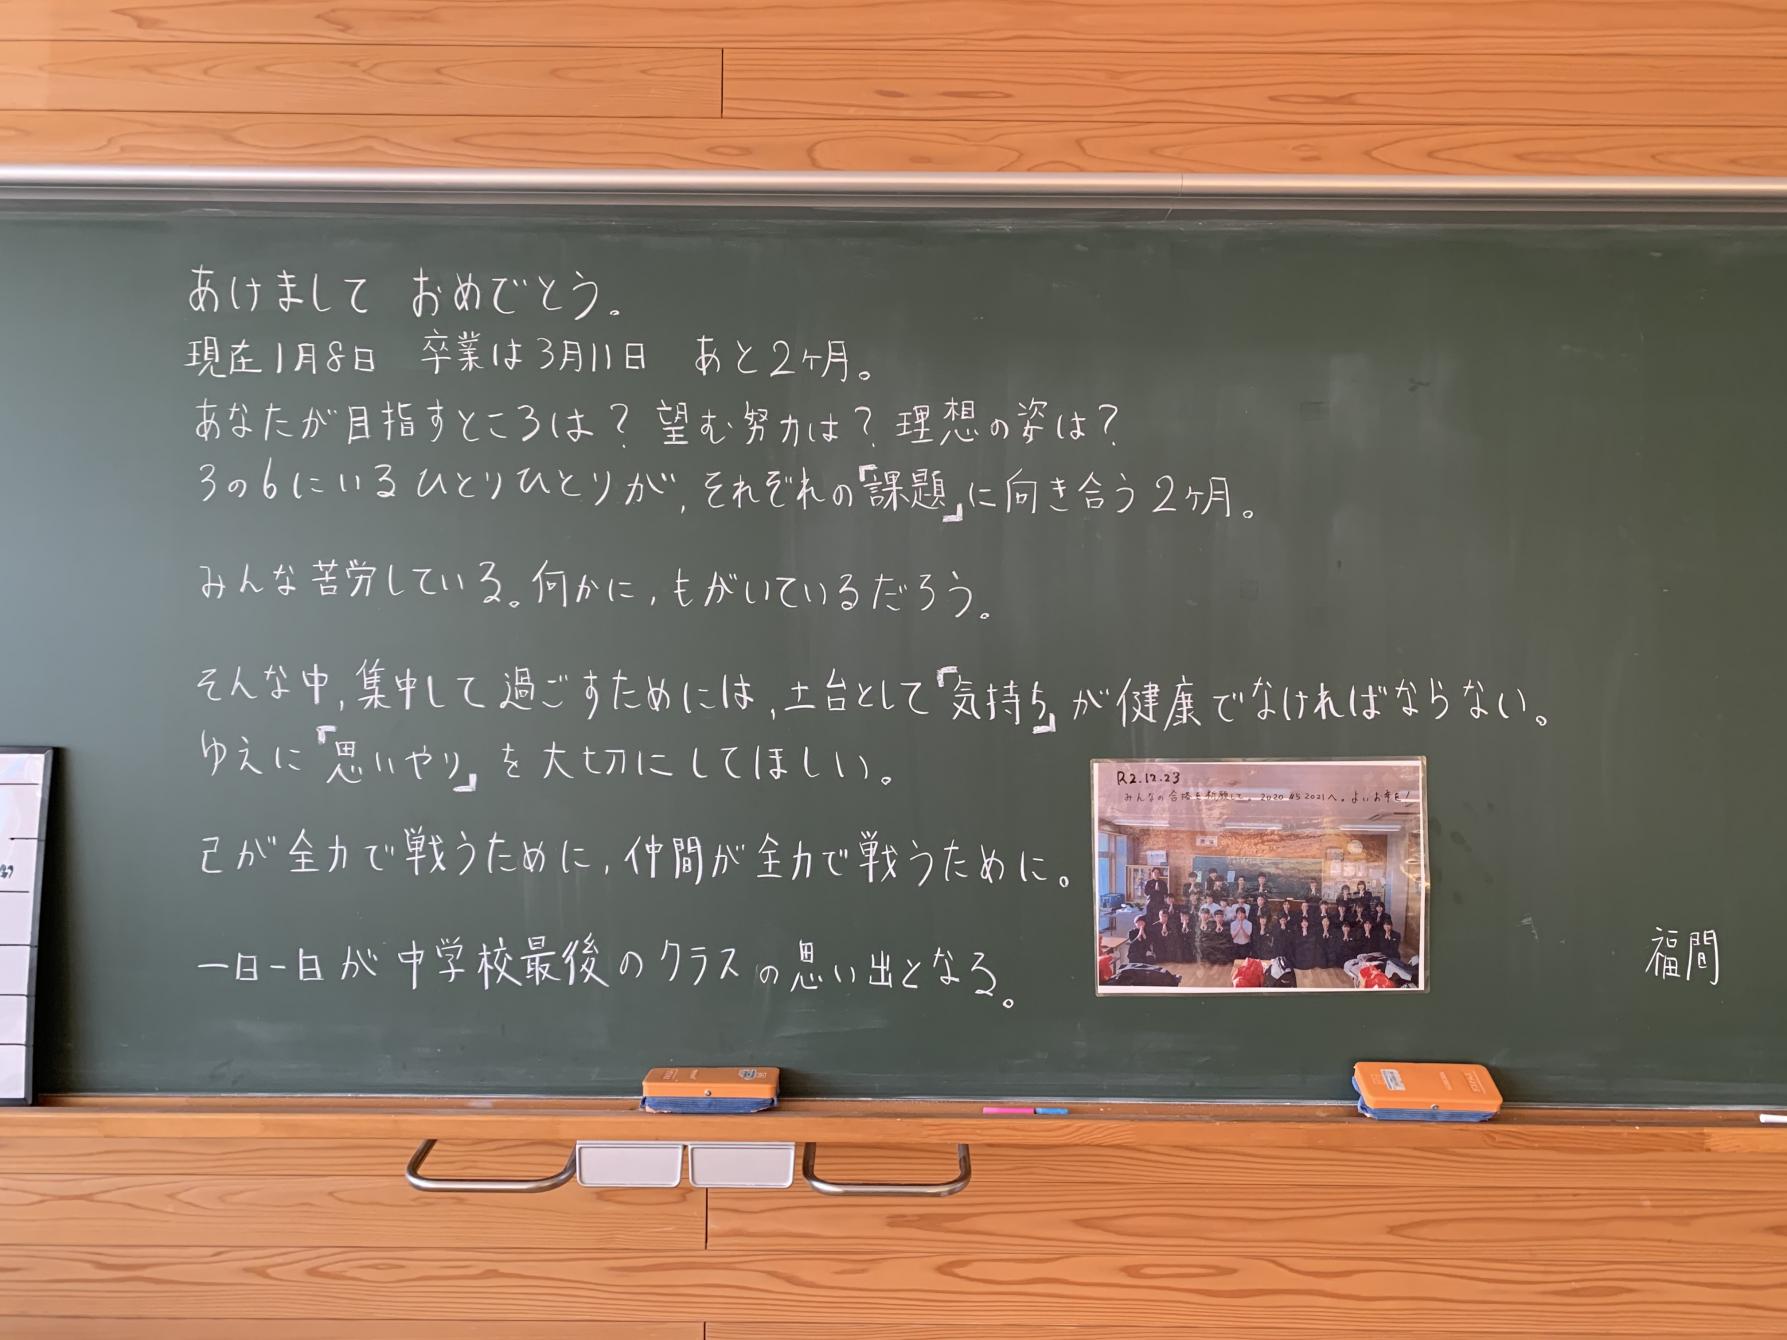 あけまして おめでとう。
現在1月8日 卒業は3月11日 あと2ヶ月。
あなたが目指すところは？ 望む努力は？ 理想の姿は？
3の6にいるひとりひとりが，それぞれの『課題』に向き合う2ヶ月。
みんな苦労している。何かに，もがいているだろう。
そんな中，集中して過ごすためには，土台として『気持ち』が健康でなければならない。
ゆえに『思いやり』を大切にしてほしい。
R2.12.23
みんなの合格を祈願して。2020から2021へ。よいお年を！
己が全力で戦うために，仲間が全力で戦うために。
一日一日が中学校最後のクラスの思い出となる。
福間